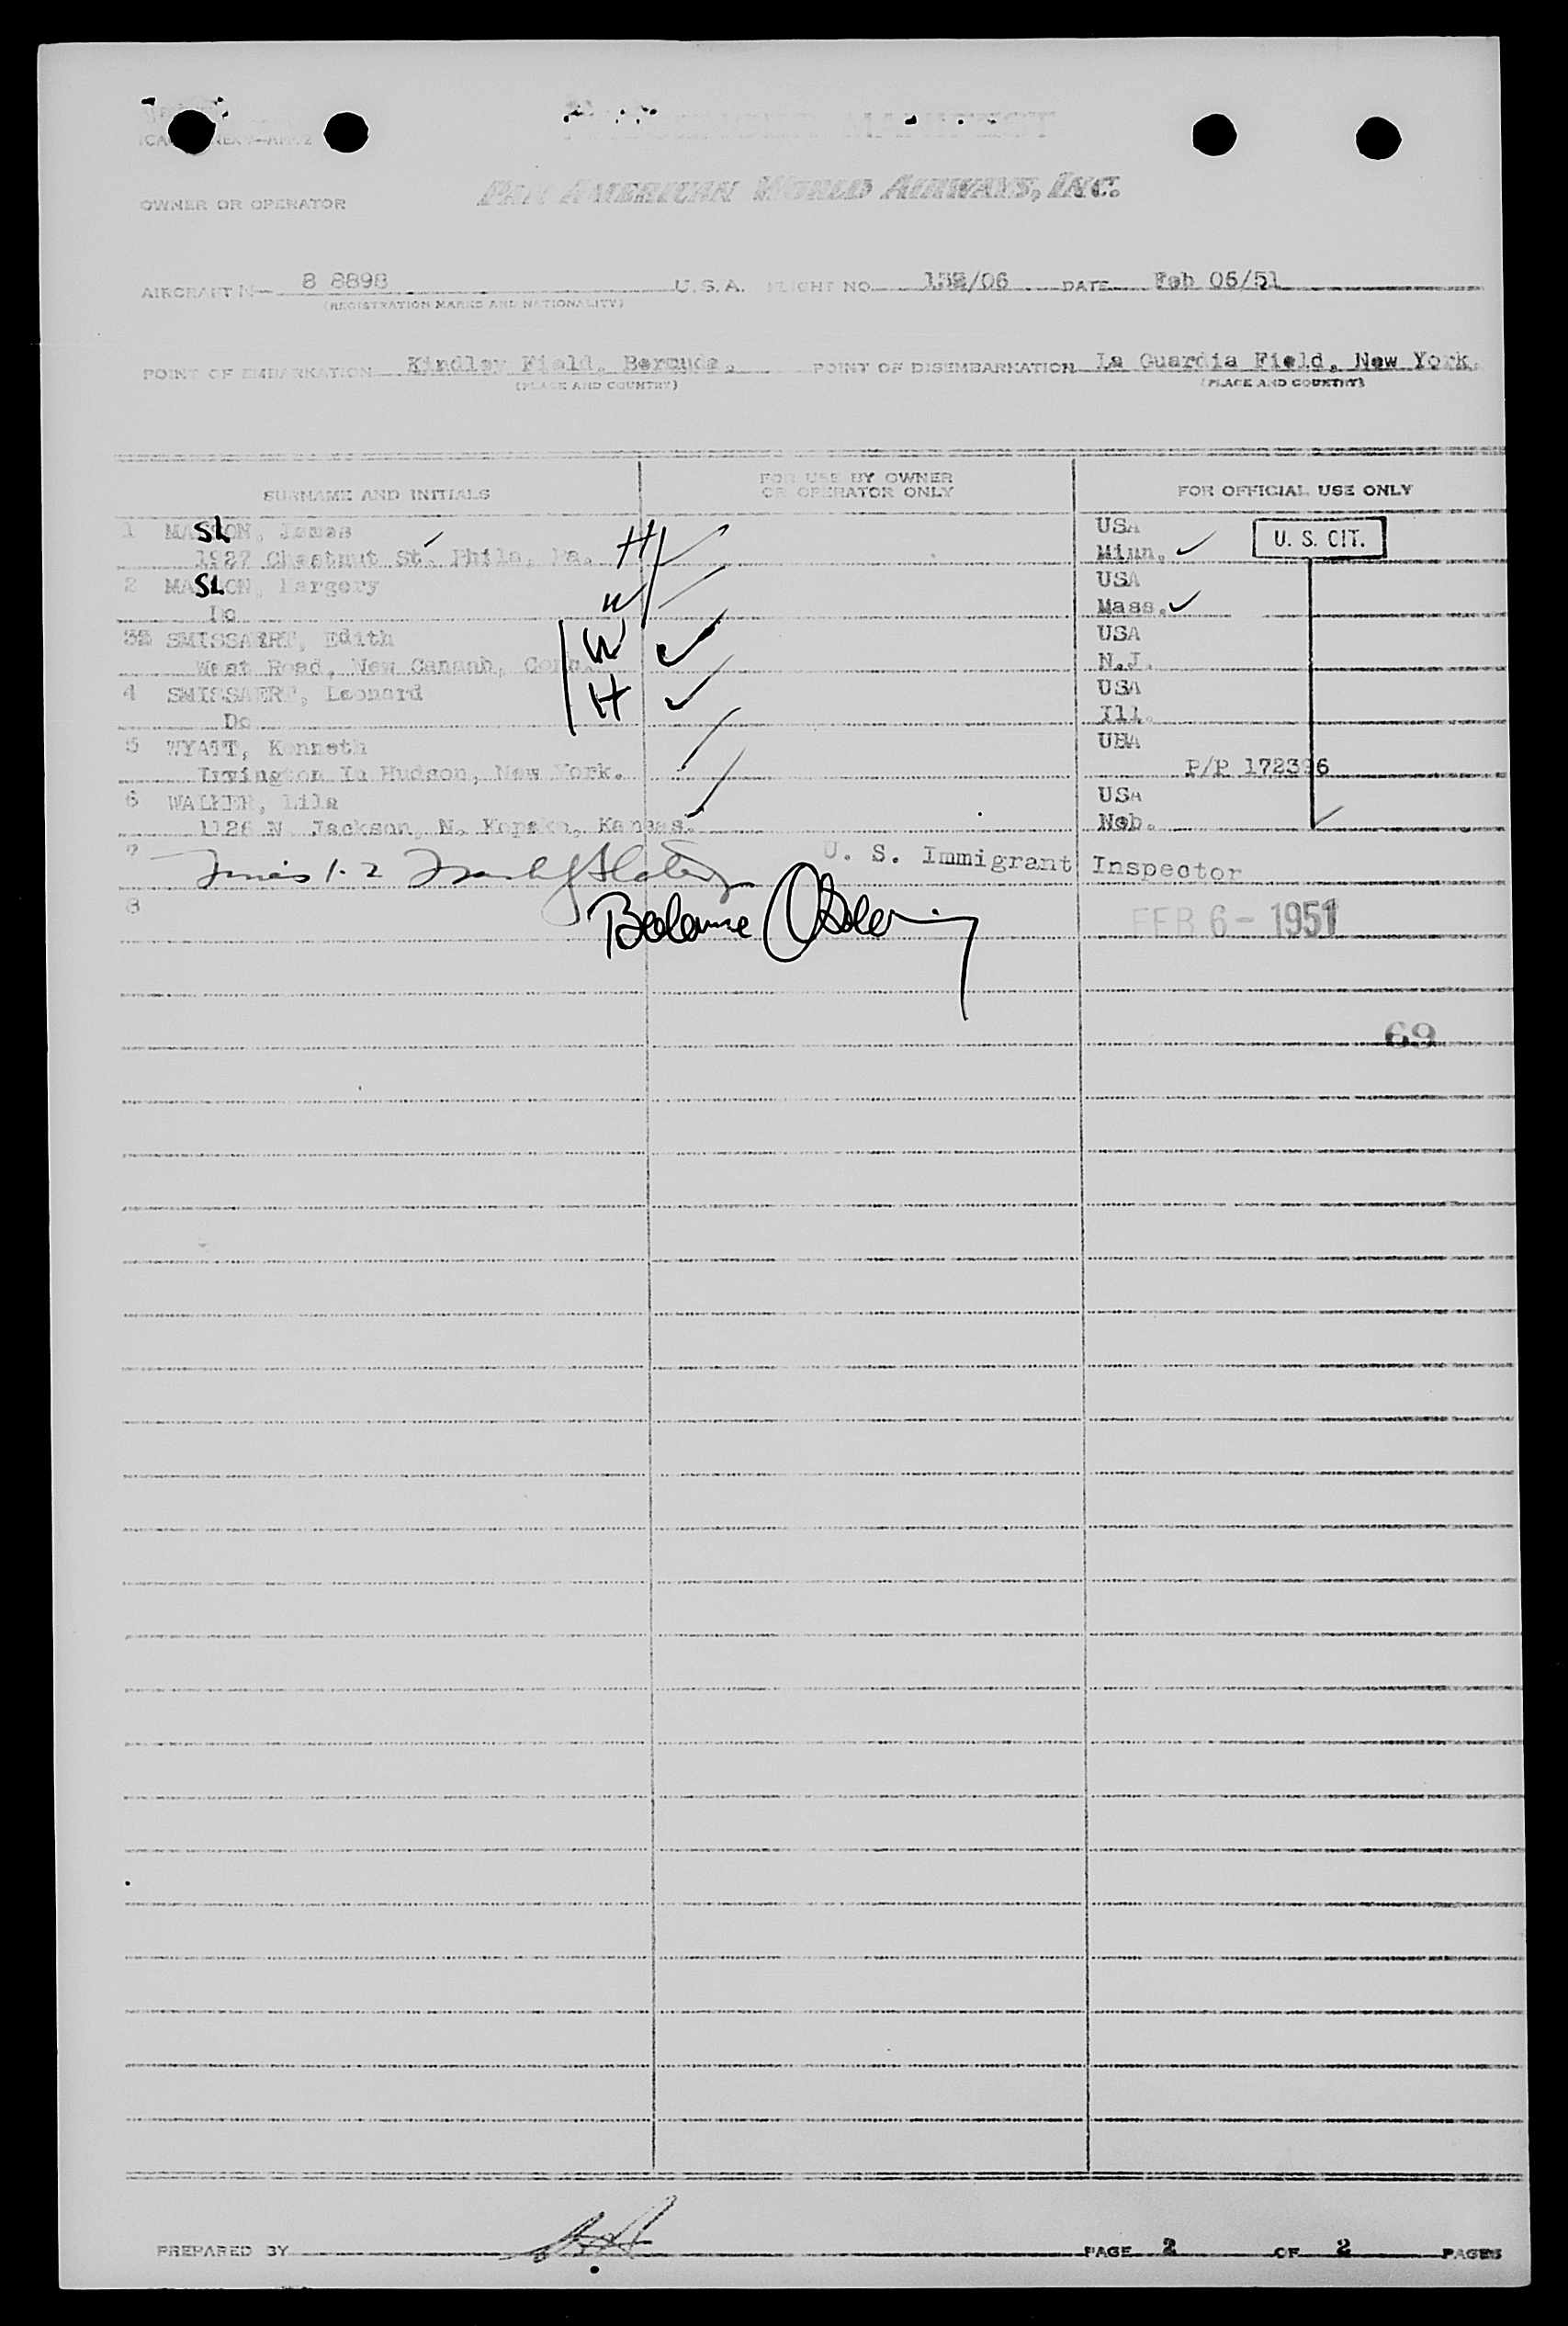 PASSENGER MANIFEST
OWNER OR OPERATOR PAN AMERICAN WORLD AIRWAYS, INC.
AIRCRAFT N 8 8898 U.S.A. FLIGHT NO. DATE Feb 06/51
(REGISTRATION MARKS AND NATIONALITY)
POINT OF EMBARKATION Kindley Field, Bermuda. POINT OF DISEMBARKATION La Guardia Field, New York.
(PLACE AND COUNTRY) (PLACE AND COUNTRY)
SURNAME AND INITIALS FOR USE BY OWNER OR OPERATOR ONLY FOR OFFICIAL USE ONLY
1 MASLON, James USA U. S. CIT.
1927 Chestnut St. Phila, Pa. H Minn.
2 MASLON, Margery USA
Do W Mass.
3 SMISSAERT, Edith W USA
West Road, New Canaan, Conn. N.J.
4 SMISSAERT, Leonard H USA
Do Ill.
5 WYATT, Kenneth USA
Irvington In Hudson, New York. P/P 172396
6 WALKER, Lila USA
1126 N. Jackson, N. Kansas. Neb.
7 Lines 1-2 U. S. Immigrant Inspector
8 Balance FEB 6 - 1951
69
PREPARED BY PAGE 2 OF 2 PAGES